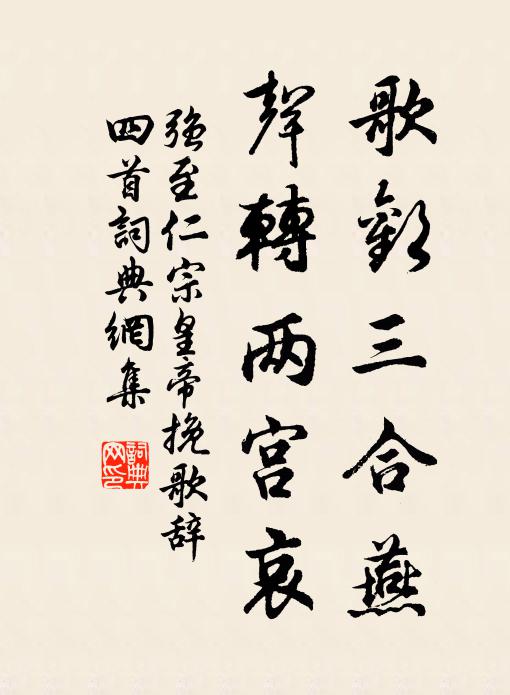 歌歡三合燕
聲轉两宫哀
强至仁宗皇帝挽歌辞
四首詞典網集
詞典网印